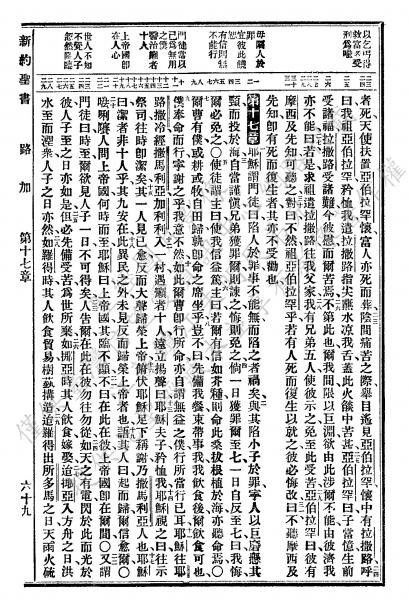 以乞丐得
救富者受
刑爲喻
毋屬人於
罪
宜彼此饒
有信則無
不能行
門徒當以
己爲無用
之僕
醫治癩者
十人
上帝國卽
在人心
世人不知
不受人子
忽然降臨
者死天使扶置亞伯拉罕懷富人亦死而葬陰間痛苦之際舉目遙見亞伯拉罕懷中有拉撒路呼
曰我祖亞伯拉罕矜恤我遣拉撒路指尖蘸水凉我舌蓋此火燄中苦甚亞伯拉罕曰子當憶生前
受諸福拉撒路受諸難今彼慰而爾苦焉不第此也爾我間限以巨淵欲由此涉爾不能由彼濟我
亦不能曰若是求祖遣拉撒路往我父家我有兄弟五人使彼示之免至此受苦亞伯拉罕曰彼有
摩西及先知可聽之對曰不然祖亞伯拉罕乎若有人死而復生以就之彼必悔改曰不聽摩西及
先知卽有死而復生者其亦不受勸也
第十七章 耶穌謂門徒曰陷人於罪事不能無而陷之者禍矣與其陷小子於罪寧人以巨磨懸其
頸而投於海自當謹愼兄弟獲罪爾則諫之悔則免之倘一日獲罪爾至七一日自反至七曰我悔
爾必免之〇使徒謂主曰使我信益篤主曰若爾有信如芥種則命此桑拔根植於海亦聽命焉〇
爾曹有僕或耕或牧自田歸孰卽命之席坐乎豈不曰先備我餐束帶事我我飲食後爾飲食可也
僕奉命而行寧謝之乎我意不然如此爾曹旣行所命亦自謂無益之僕行所當行已耳〇耶穌往耶
路撒冷經撒馬利亞加利利入一村遇癩者十人遠立揚聲曰耶穌夫子矜恤我耶穌視之曰往示
祭司往時卽潔矣其一人見已愈反而大聲歸榮上帝者俯伏耶穌足下稱謝乃撒馬利亞人也耶穌
曰潔者非十人乎其九安在此異民之外未見反而歸榮上帝者也語其人曰起而歸爾信愈爾〇
唎㘔人問上帝國何時而至耶穌曰上帝國其臨不顯不曰在此在彼上帝國卽在爾間〇又謂
門徒曰時至爾欲見人子一日不可得矣人告爾在此在彼勿往勿從如天之有電閃於此而光於
彼人子之日亦如是但必先備受苦爲世所棄如挪亞時其人飲食嫁娶迨挪亞入方舟之日洪
水至而湮衆人子之日亦然如羅得時其人飲食貿易樹蓺搆造迨羅得出所多馬之日天雨火硫
新約聖書 路加 第十七章 六十九